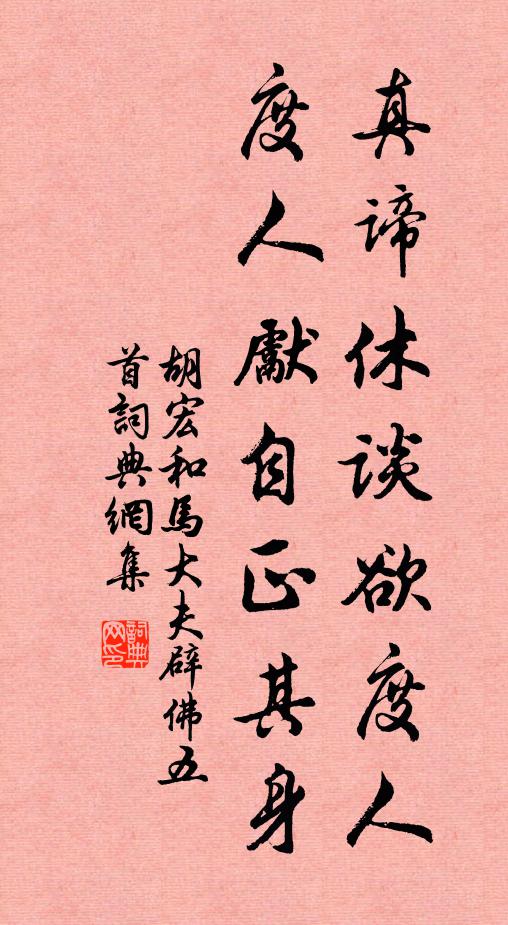 真諦休談欲度人
度人獻自正其身
胡宏和馬大夫辟佛五
首詞典網集
詞典
网印